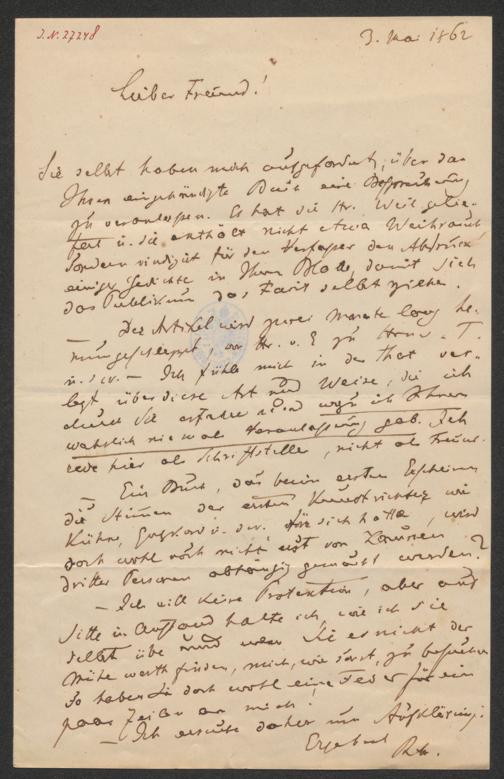 J.N. 27248
3. Mai 1862
Lieber Freund!
Sie selbst haben mich aufgefordert, über das
Ihnen eingehändigte Buch eine Besprechung
zu veranlassen. Es hat sie Hr. Weil geliefert
u. sie enthält nicht etwa Weihrauch
sondern vindizirt für den Verfasser den Abdruck
einiger Gedichte in Ihrem Blatte, damit sich
das Publikum das Fazit selbst ziehe.
– Der Artikel wird zwei Monate lang he-
rumgeschleppt, von Hr. v. E zu Hrn. v. T.
u. s w. – Ich fühle mich in der That ver-
letzt über diese Art und Weise, die ich
durch Sie erfahre und wozu ich Ihnen
wahrlich niemal Veranlassung gab. Ich
rede hier als Schriftsteller, nicht als Freund.
– Ein Buch, das beim ersten Erscheinen
die Stimmen der ersten Kunstrichter wie
Kühne, u. s. w. für sich hatte, wird
doch wohl noch nicht erst von Launen
dritter Personen abhängig gemacht werden?
– Ich will keine Protektion, aber auf
Sitte und Anstand halte ich, wie ich sie
selbst übe und wenn Sie es nicht der
Mühe werth finden, mich, wie sonst, zu besuchen
so haben Sie doch wohl eine Feder für ein
paar Zeilen an mich!
– Ich ersuche daher um Aufklärung.
Ergebenst